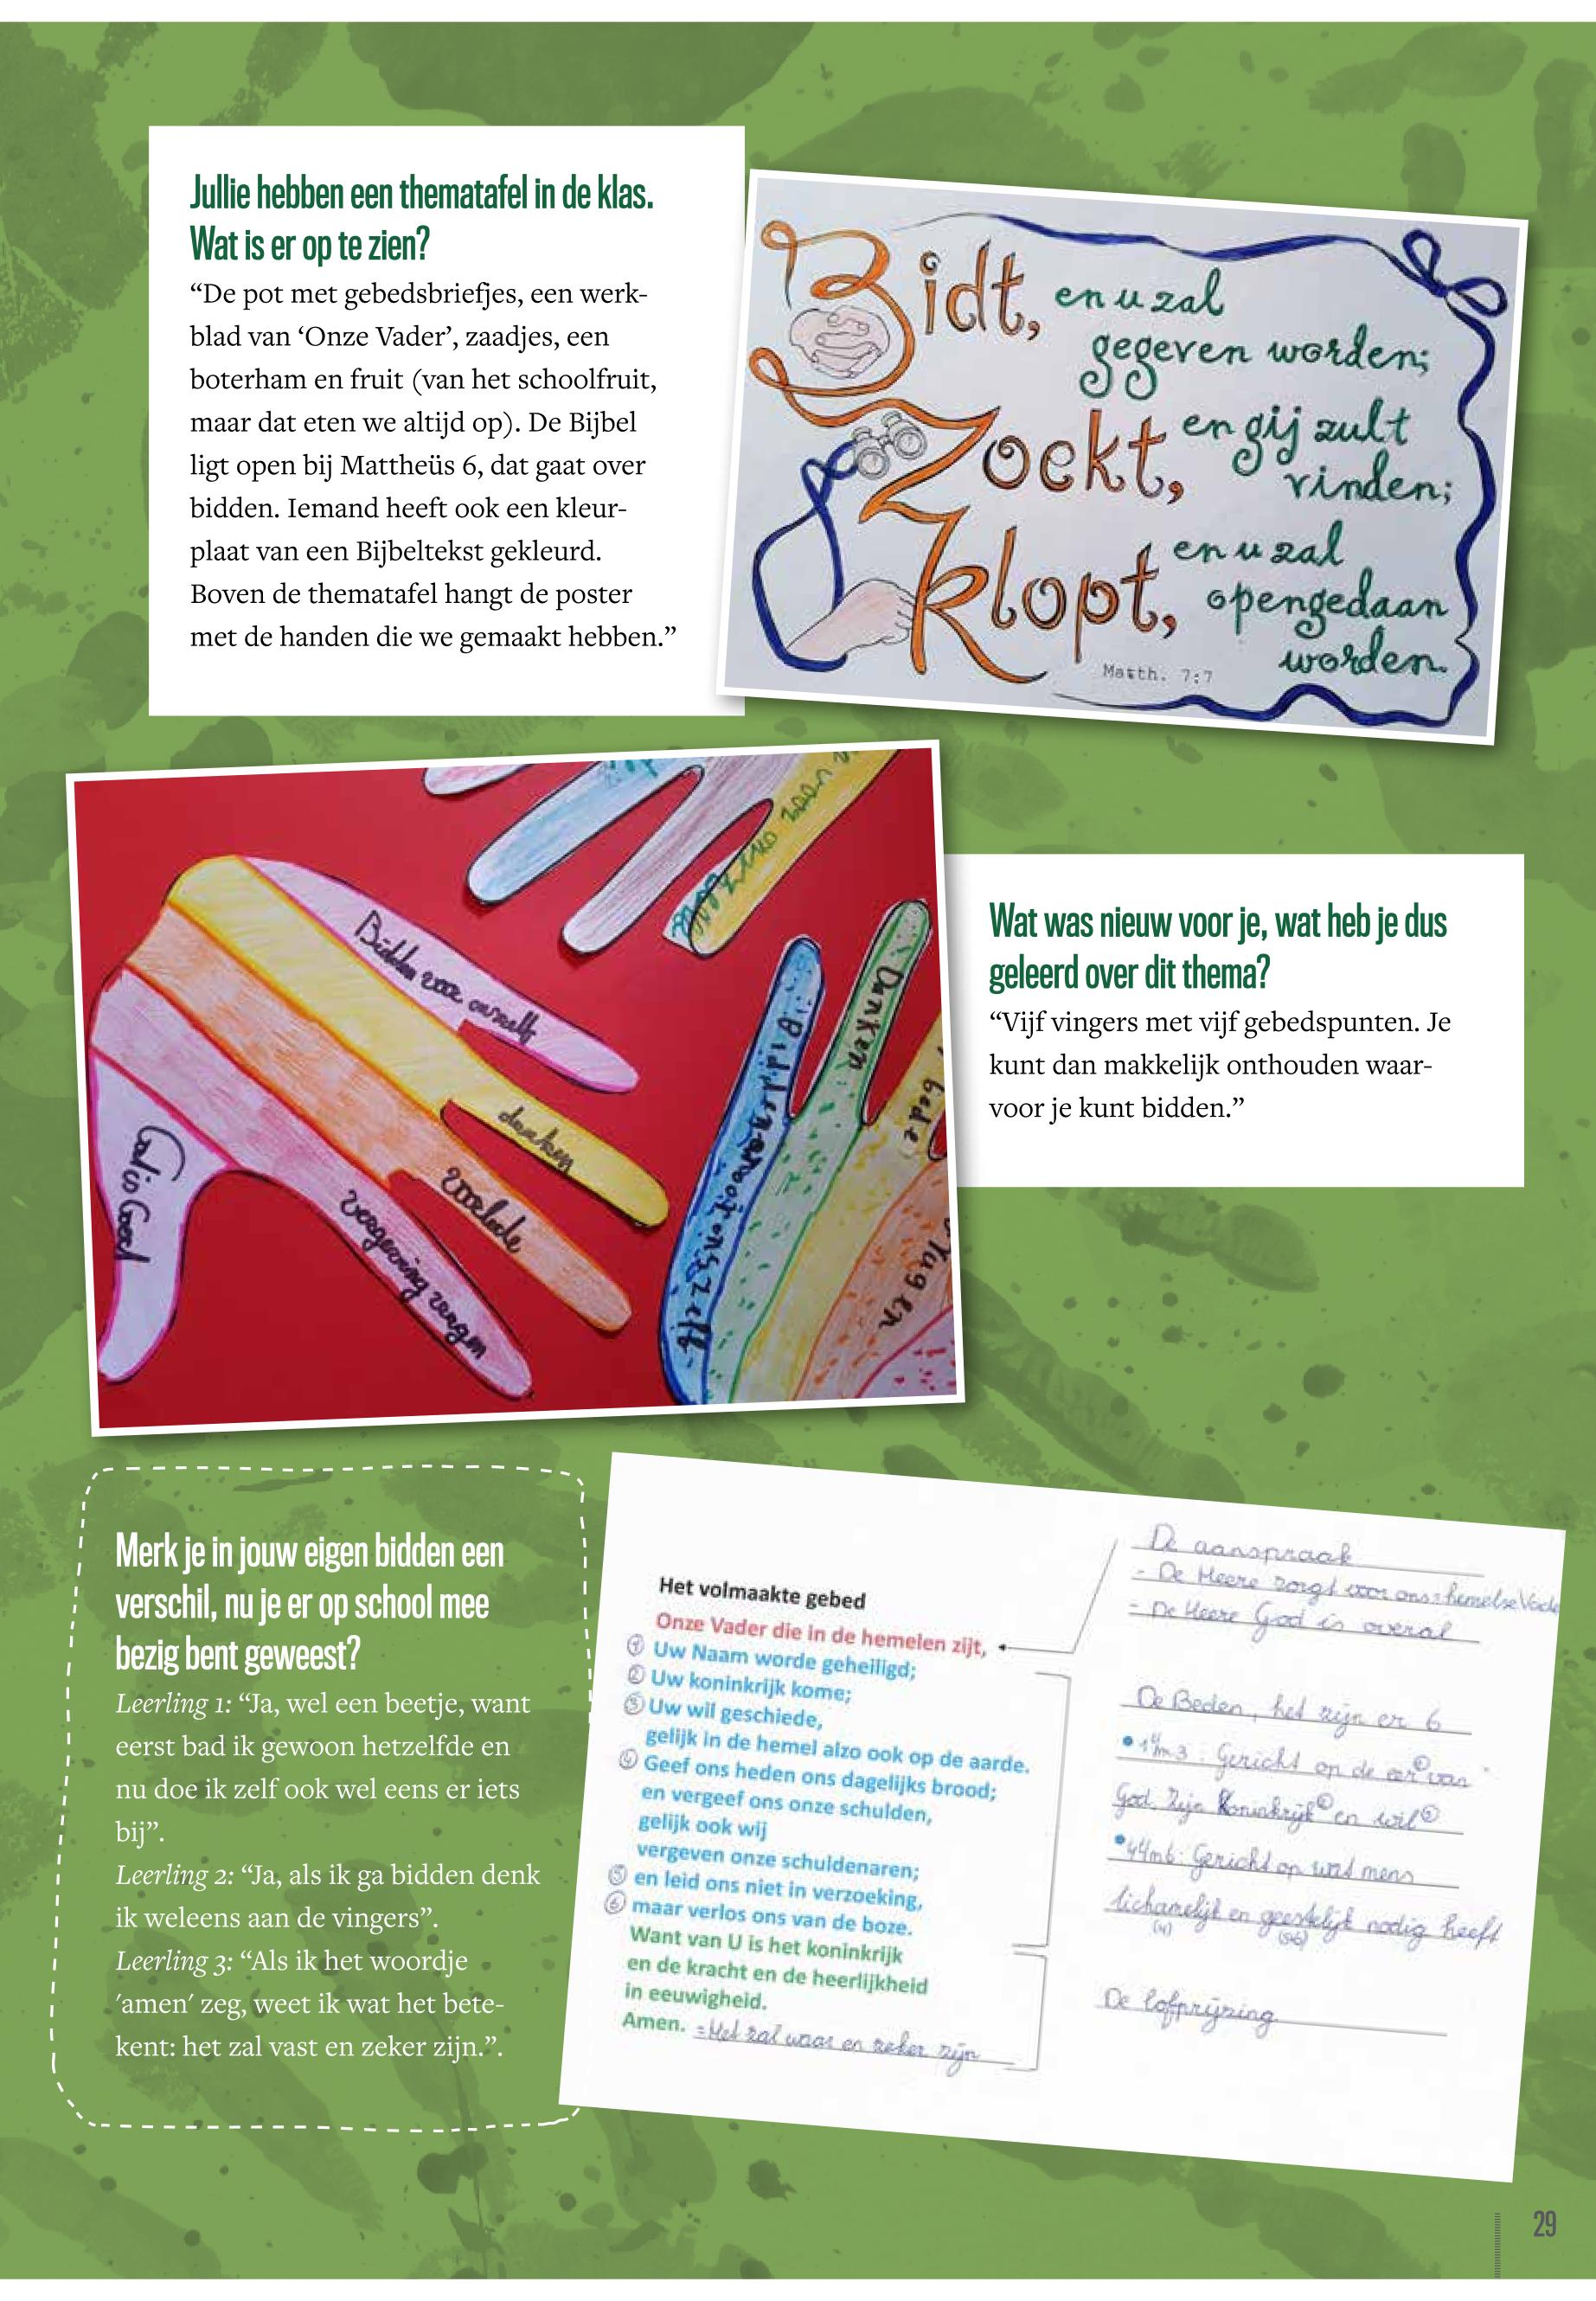 Jullie hebben een thematafel in de klas.
Wat is er op te zien?
“De pot met gebedsbriefjes, een werk-
blad van ‘Onze Vader’, zaadjes, een
boterham en fruit (van het schoolfruit,
maar dat eten we altijd op). De Bijbel
ligt open bij Mattheüs 6, dat gaat over
bidden. Iemand heeft ook een kleur-
plaat van een Bijbeltekst gekleurd.
Boven de thematafel hangt de poster
met de handen die we gemaakt hebben.”
Bidt, en u zal
gegeven worden;
Zoekt, en gij zult
vinden;
klopt, en u zal
opengedaan
worden.
Matth. 7:7
Bidden voor onszelf
danken
voorbede
vergeving vragen
God is Goed
Bidden voor onszelf
Danken
bede
Wat was nieuw voor je, wat heb je dus
geleerd over dit thema?
“Vijf vingers met vijf gebedspunten. Je
kunt dan makkelijk onthouden waar-
voor je kunt bidden.”
Merk je in jouw eigen bidden een
verschil, nu je er op school mee
bezig bent geweest?
Leerling 1: “Ja, wel een beetje, want
eerst bad ik gewoon hetzelfde en
nu doe ik zelf ook wel eens er iets
bij”.
Leerling 2: “Ja, als ik ga bidden denk
ik weleens aan de vingers”.
Leerling 3: “Als ik het woordje
'amen' zeg, weet ik wat het bete-
kent: het zal vast en zeker zijn.”.
Het volmaakte gebed
Onze Vader die in de hemelen zijt,
① Uw Naam worde geheiligd;
② Uw koninkrijk kome;
③ Uw wil geschiede,
gelijk in de hemel alzo ook op de aarde.
④ Geef ons heden ons dagelijks brood;
en vergeef ons onze schulden,
gelijk ook wij
vergeven onze schuldenaren;
⑤ en leid ons niet in verzoeking,
⑥ maar verlos ons van de boze.
Want van U is het koninkrijk
en de kracht en de heerlijkheid
in eeuwigheid.
Amen. = Het zal waar en zeker zijn
De aanspraak
- De Heere zorgt voor ons = hemelse Vade
- De Heere God is overal
De Beden, het zijn er 6
• 1 t/m 3 : Gericht op de eer van
God, Zijn Koninkrijk en wil
• 4 t/m 6 : Gericht op wat mens
lichamelijk en geestelijk nodig heeft
(4) (5+6)
De lofprijzing
29